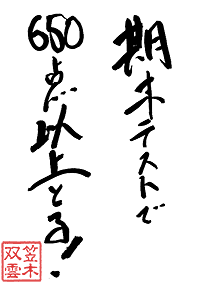 期末テストで
650点以上とる!
笠木
双雲